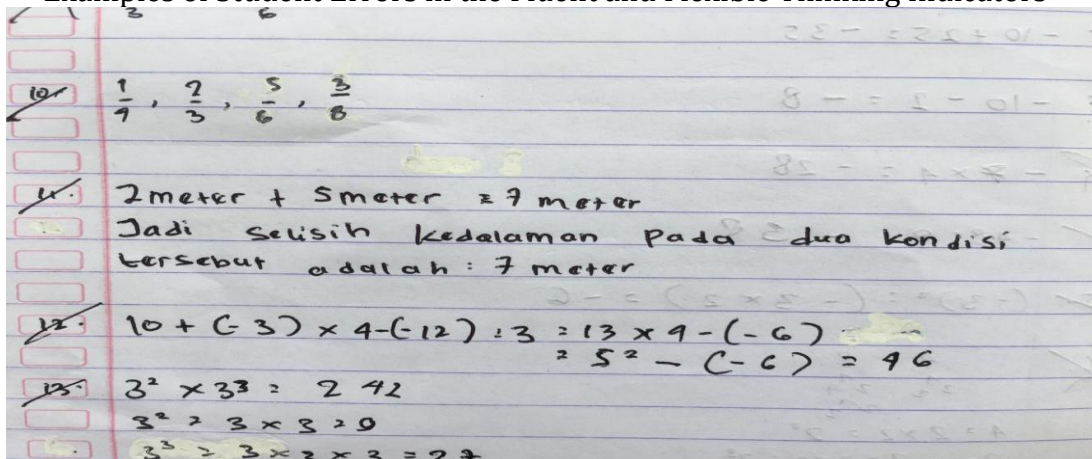 Examples of Student Errors in the Fluent and Flexible Thinking Indicators
3 6
10. 1/4, 2/3, 5/6, 3/8
11. 2 meter + 5 meter = 7 meter
Jadi selisih kedalaman pada dua kondisi
tersebut adalah : 7 meter
12. 10 + (-3) × 4-(-12) : 3 = 13 × 4 - (-6)
= 52 - (-6) = 46
13. 3² × 3³ = 242
3² = 3 × 3 = 9
3³ = 3 × 3 × 3 = 27